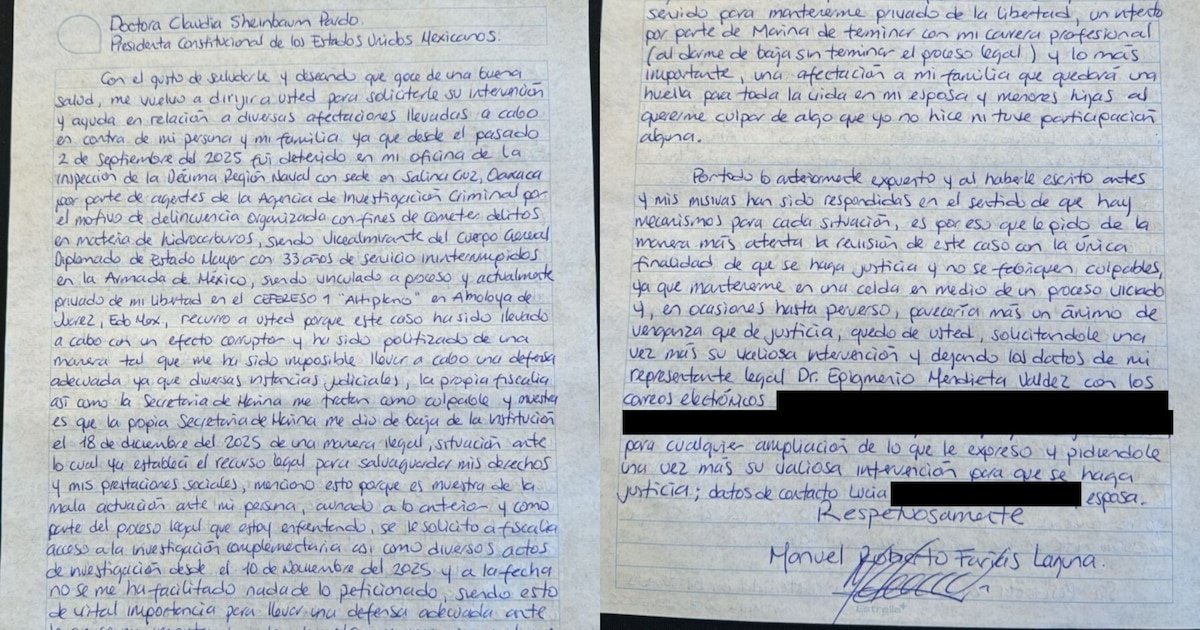 Doctora Claudia Sheinbaum Pardo.
Presidenta Constitucional de los Estados Unidos Mexicanos.
Con el gusto de saludarle y deseando que goce de una buena
salud, me vuelvo a dirigir a usted para solicitarle su intervención
y ayuda en relación a diversas afectaciones llevadas a cabo
en contra de mi persona y mi familia ya que desde el pasado
2 de septiembre del 2025 fui detenido en mi oficina de la
inspección de la Décima Región Naval con sede en Salina Cruz, Oaxaca
por parte de agentes de la Agencia de Investigación Criminal por
el motivo de delincuencia organizada con fines de cometer delitos
en materia de hidrocarburos, siendo vicealmirante del Cuerpo General
Diplomado de Estado Mayor con 33 años de servicio ininterrumpidos
en la Armada de México, siendo vinculado a proceso y actualmente
privado de mi libertad en el CEFERESO 1 "Altiplano" en Almoloya de
Juárez, Edo Mex, recurro a usted porque este caso ha sido llevado
a cabo con un efecto corruptor y ha sido politizado de una
manera tal que me ha sido imposible llevar a cabo una defensa
adecuada ya que diversas instancias judiciales, la propia fiscalía
así como la Secretaría de Marina me tratan como culpable y muestra
es que la propia Secretaría de Marina me dio de baja de la institución
el 18 de diciembre del 2025 de una manera ilegal, situación ante
lo cual ya establecí el recurso legal para salvaguardar mis derechos
y mis prestaciones sociales, menciono esto porque es muestra de la
mala actuación ante mi persona, aunado a lo anterior y como
parte del proceso legal que estoy enfrentando, se le solicito a fiscalía
acceso a la investigación complementaria así como diversos actos
de investigación desde el 10 de Noviembre del 2025 y a la fecha
no se me ha facilitado nada de lo peticionado, siendo esto
de vital importancia para llevar una defensa adecuada ante
servido para mantenerme privado de la libertad, un intento
por parte de Marina de terminar con mi carrera profesional
(al darme de baja sin terminar el proceso legal) y lo más
importante, una afectación a mi familia que quedará una
huella para toda la vida en mi esposa y menores hijas al
quererme culpar de algo que yo no hice ni tuve participación
alguna.
Por todo lo anteriormente expuesto y al haberle escrito antes
y mis misivas han sido respondidas en el sentido de que hay
mecanismos para cada situación, es por eso que le pido de la
manera más atenta la revisión de este caso con la única
finalidad de que se haga justicia y no se fabriquen culpables,
ya que mantenerme en una celda en medio de un proceso viciado
y, en ocasiones hasta perverso, parecería más un ánimo de
venganza que de justicia, quedo de usted, solicitandole una
vez más su valiosa intervención y dejando los datos de mi
representante legal Dr. Epigmenio Mendieta Valdez con los
correos electrónicos
para cualquier ampliación de lo que le expreso y pidiendole
una vez más su valiosa intervención para que se haga
justicia; datos de contacto Lucia esposa.
Respetuosamente
Manuel Roberto Farías Laguna.
Estrella